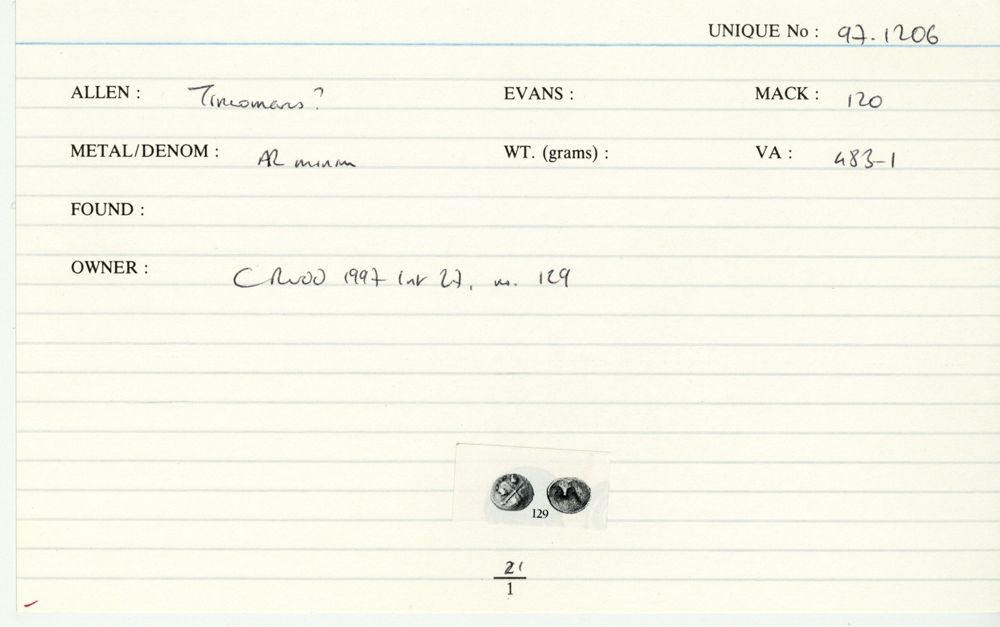 UNIQUE No : 97.1206
ALLEN : Tincomarus? EVANS : MACK : 120
METAL/DENOM : AR minim WT. (grams) : VA : 483-1
FOUND :
OWNER : C Rudd 1997 List 27, no. 129
129
21
1